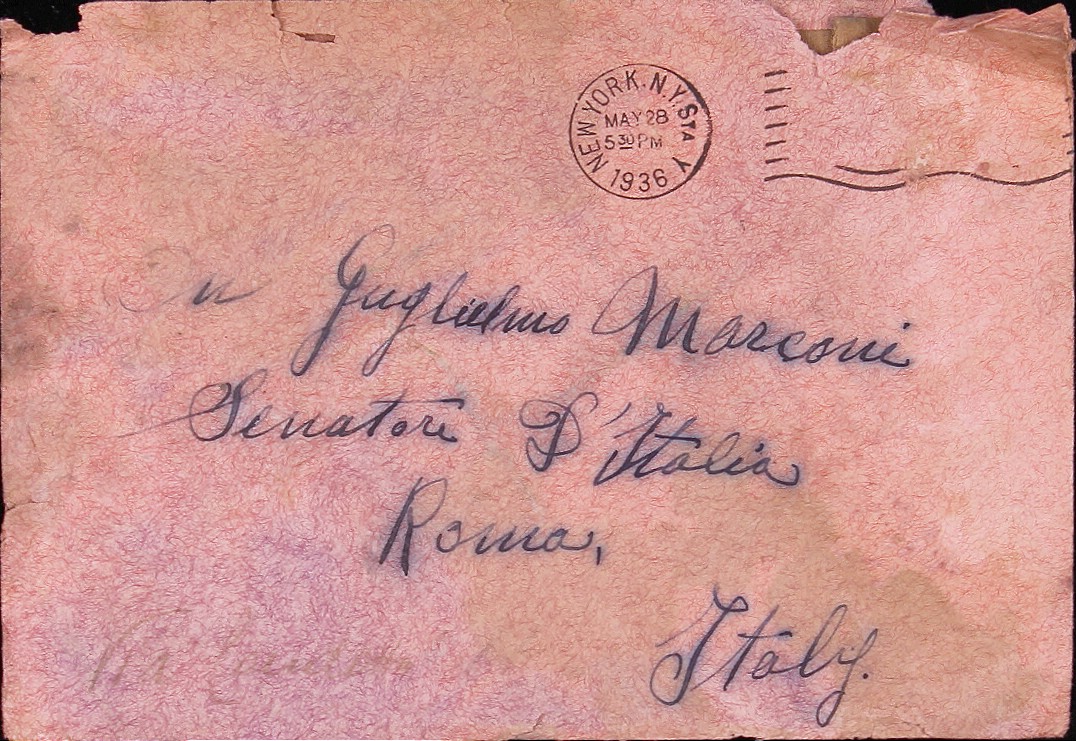 NEW YORK, N.Y. STA Y
MAY 28
5 30 PM
1936
Guglielmo Marconi
Senatore D'Italia
Roma,
Italy.